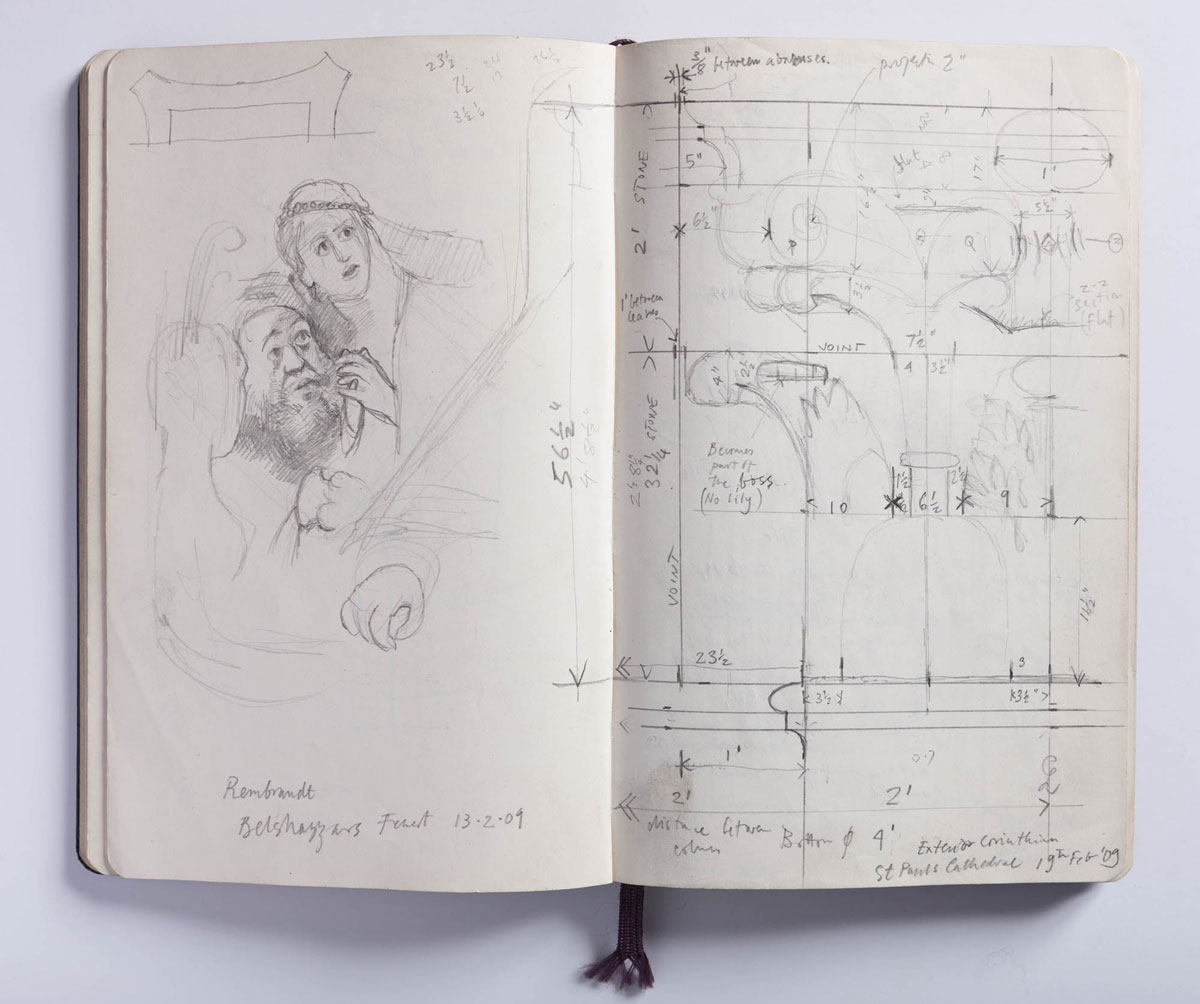 23½
7½
3½
Rembrandt
Belshazzars Feast 13·2·09
56½"
3/8" between abacuses.
projects 2"
5"
2' STONE
6½"
17"
1'
flat
5½"
2-2
section
(flat)
3½
1" between
leaves
JOINT
7½"
4 3½"
4"
2½
32¼ STONE
Becomes
part of
the boss.
(No lily)
10
1½
6½
2½
9
JOINT
23½
3
3½
3½"
1'
2'
2'
distance between
columns
Bottom φ 4'
Exterior Corinthian
St Pauls Cathedral 19th Feb '09